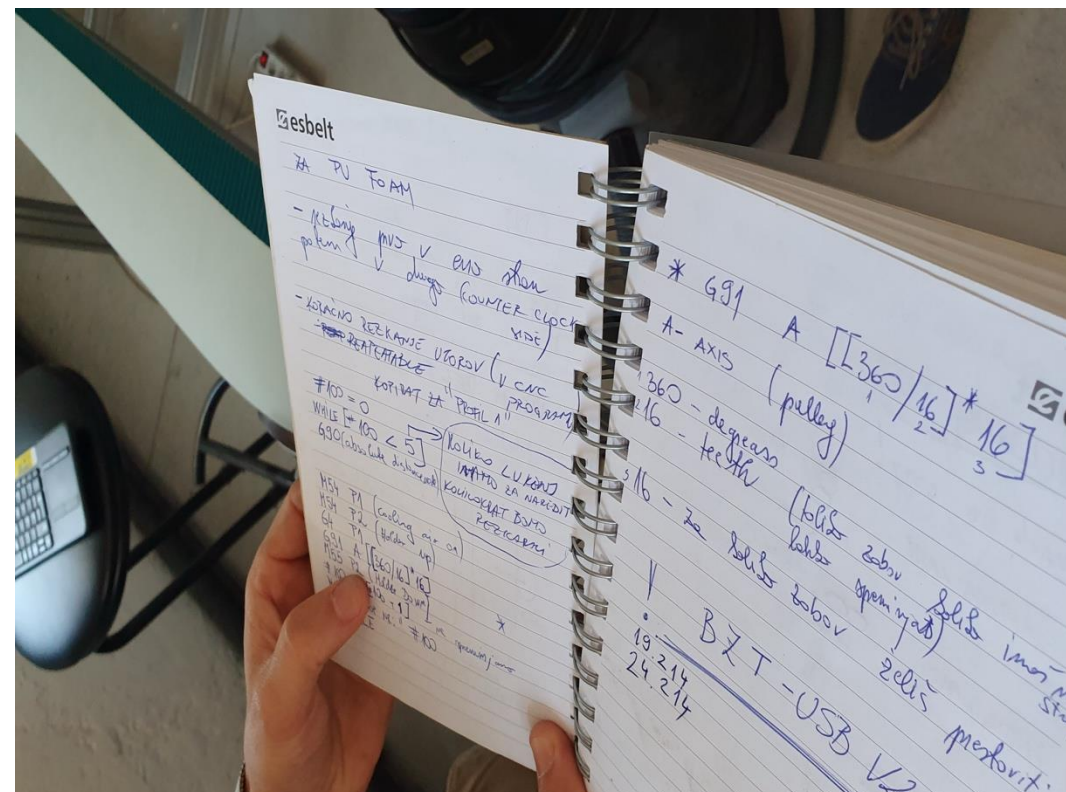 esbelt
ZA PU FOAM
- prvo v eno stran
potem v drugo (COUNTER CLOCK
SIDE)
REZKANJE UTOROV (V CNC
REAPEATABLE PROGRAMU)
KOPIRAT ZA "PROFIL 1"
#100 = 0
WHILE [#100 < 5]
G90 (absolute
KOLIKO LUKENJ
IMAMO ZA NAREDIT
KOLIKOKRAT BOMO
REZKALI
M54 P1 (cooling air on)
M54 P2 (Holder Up)
G4 P1
G91 A [[360/16]*16]
M55 P2 (Holder Down)
+ 1]
#100
*
* G91 A [[360/16]*16]
1 2 3
A - AXIS (pulley)
1 360 - degreass
2 16 - teeth (koliko zobov koliko imaš
lahko spreminjaš)
3 16 - za koliko zobov želiš prestaviti
!
BZT - USB V2
19.214
24.214